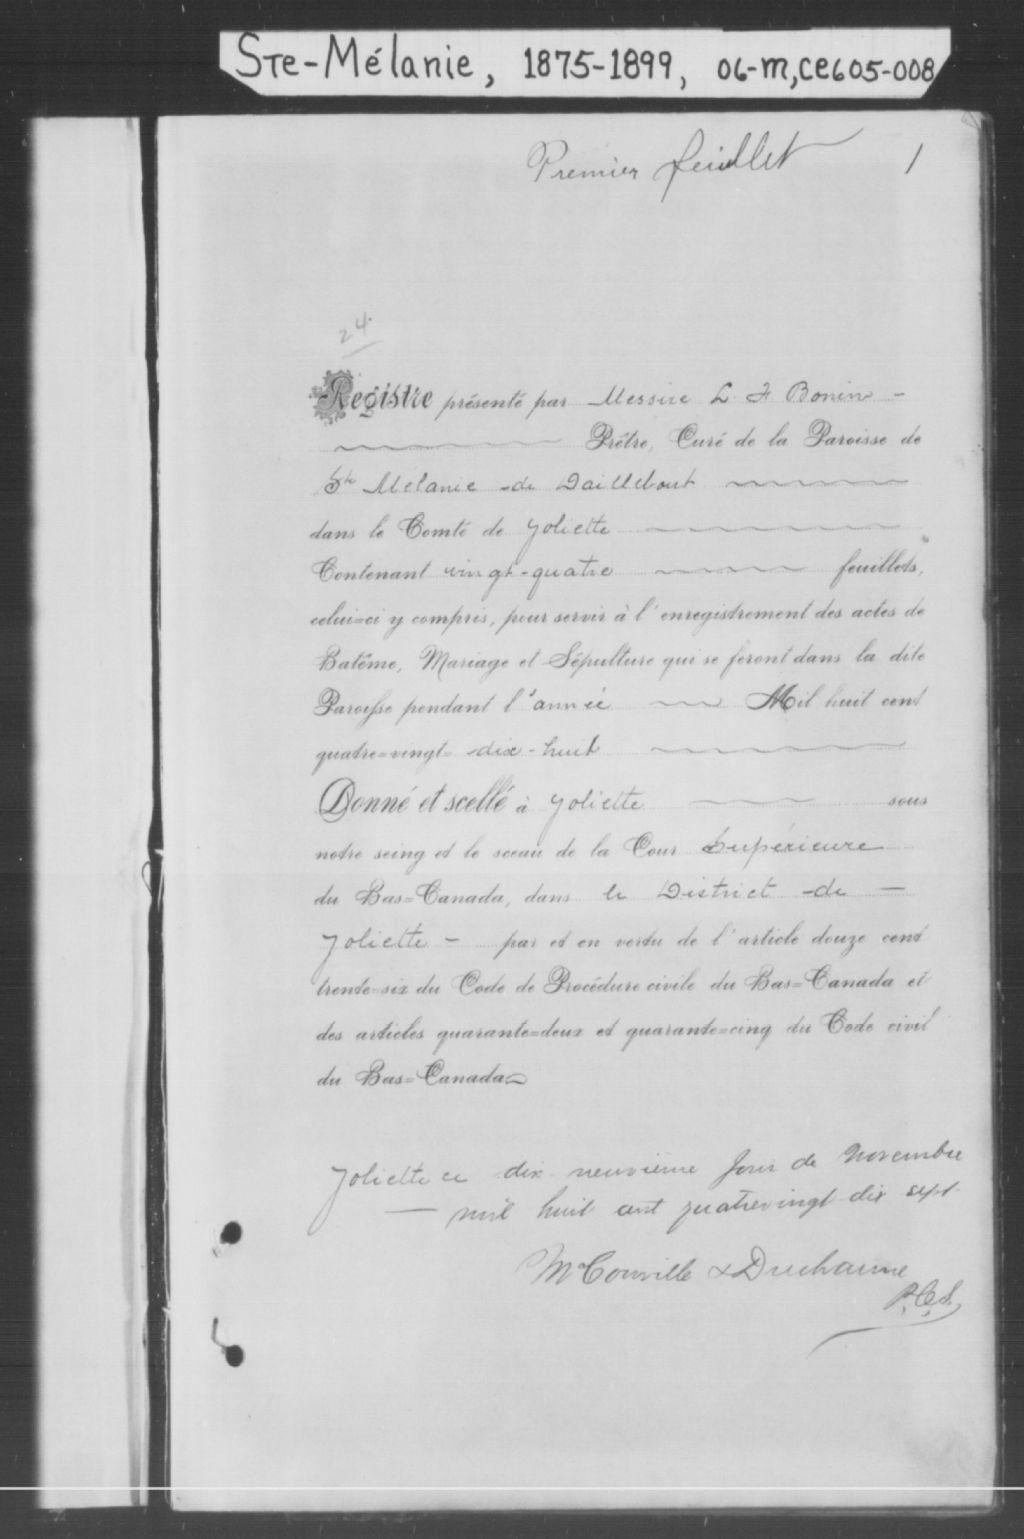 Ste-Mélanie, 1875-1899, 06-M, CE605-008
Premier feuillet 1
24.
Registre présenté par Messire L. F. Bonin -
Prêtre, Curé de la Paroisse de
Ste Mélanie de Daillebout
dans le Comté de Joliette
Contenant vingt-quatre feuillets,
celui=ci y compris, pour servir à l'enregistrement des actes de
Batême, Mariage et Sépulture qui se feront dans la dite
Paroisse pendant l'année Mil huit cent
quatre=vingt= dix-huit
Donné et scellé à Joliette sous
notre seing et le sceau de la Cour Supérieure
du Bas=Canada, dans le District de -
Joliette - par et en vertu de l'article douze cent
trente=six du Code de Procédure civile du Bas=Canada et
des articles quarante=deux et quarante=cinq du Code civil
du Bas=Canada
Joliette ce dix neuvième jour de Novembre
- mil huit cent quatrevingt dix sept
McConville & Ducharme
P.C.S.